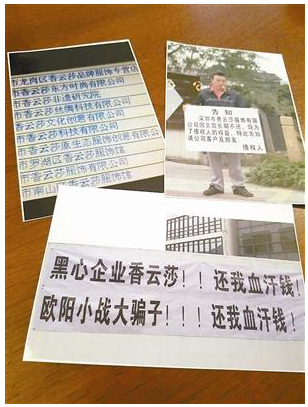 市龙岗区香云莎品牌服饰专营店
市香云莎东方时尚有限公司
市香云莎非遗研究院
市香云莎丝绸科技有限公司
香云莎文化创意有限公司
市香云莎科技有限公司
市香云莎原生态服饰创意有限公
市罗湖区香云莎服饰馆
市香云莎服饰有限公司
市南山 香云莎服饰馆
告知
深圳市香云莎服饰有限
公司因欠款长期不还，现为
了债权人的权益，特此告知
该公司客户及朋友。
债权人
黑心企业香云莎！！还我血汗钱！
欧阳小战大骗子！！！还我血汗钱！